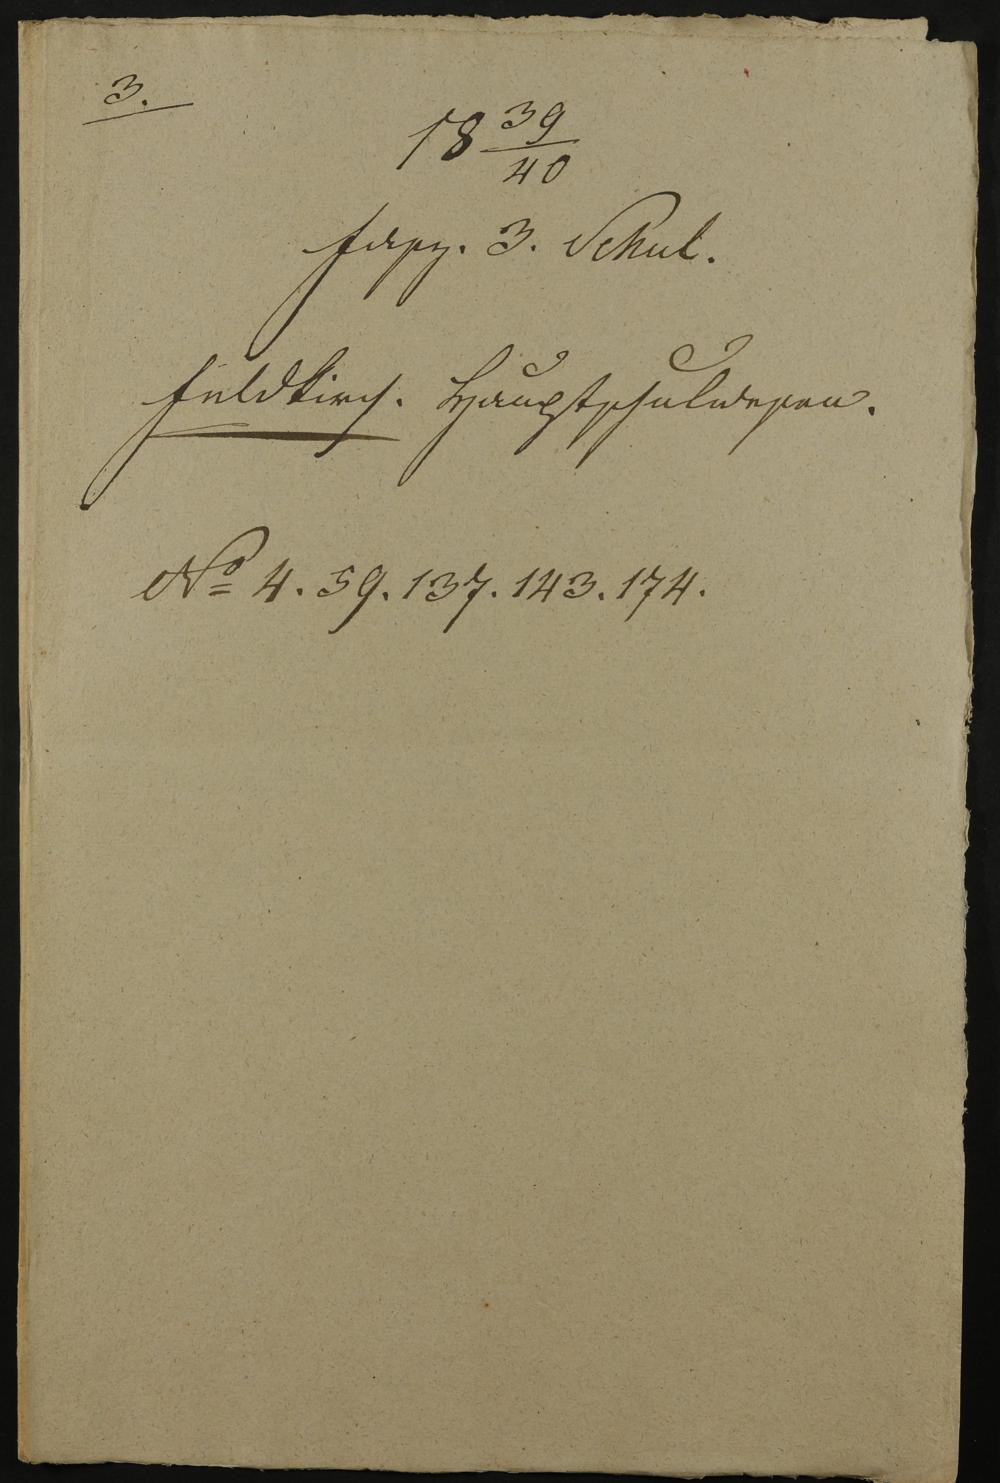 3.
18 39/40
Fasz. 3. Schul.
Feldkirch. Hauptschulwesen.
No 4. 59. 137. 143. 174.